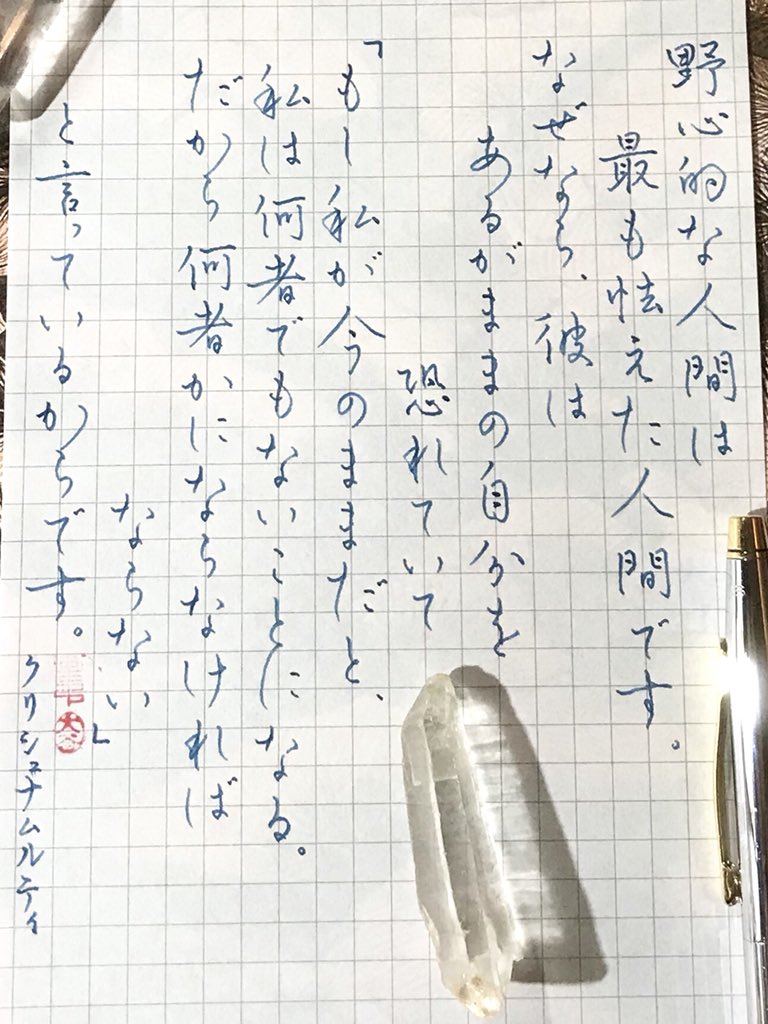 野心的な人間は
最も怯えた人間です。
なぜなら、彼は
あるがままの自分を
恐れていて
「もし私が今のままだと、
私は何者でもないことになる。
だから何者かにならなければ
ならない」
と言っているからです。
クリシュナムルティ